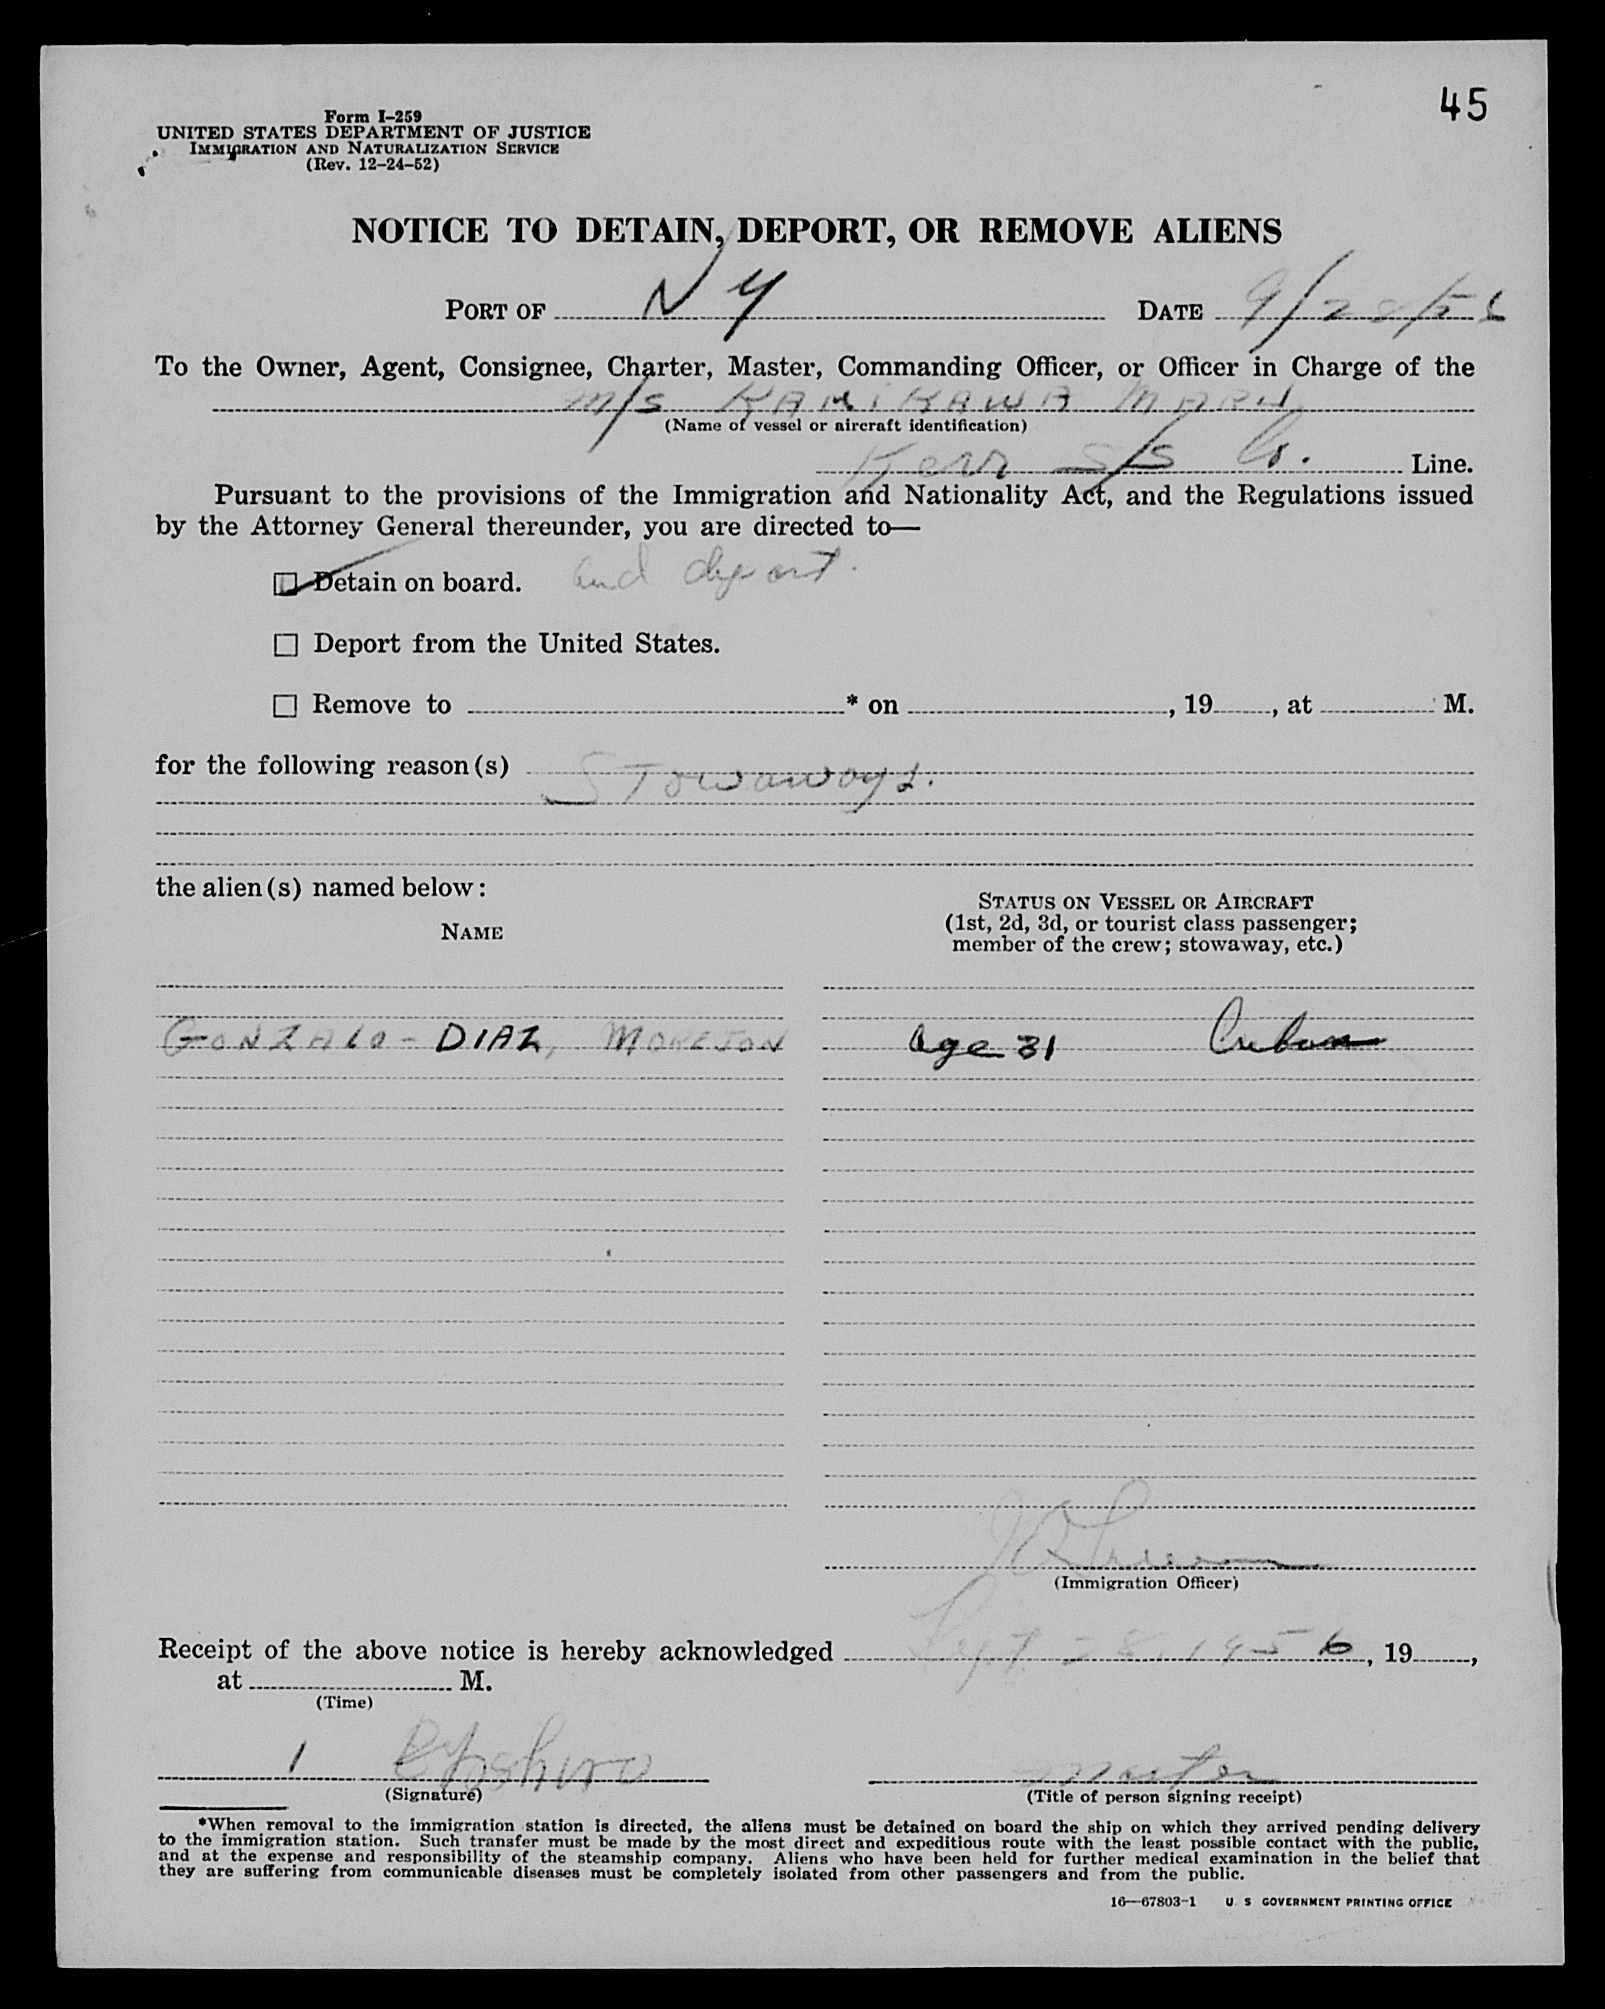 45
Form I-259
UNITED STATES DEPARTMENT OF JUSTICE
IMMIGRATION AND NATURALIZATION SERVICE
(Rev. 12-24-52)
NOTICE TO DETAIN, DEPORT, OR REMOVE ALIENS
PORT OF N Y DATE 9/28/56
To the Owner, Agent, Consignee, Charter, Master, Commanding Officer, or Officer in Charge of the
M/S KAMIKAWA MARU
(Name of vessel or aircraft identification)
Kerr S/S Co. Line.
Pursuant to the provisions of the Immigration and Nationality Act, and the Regulations issued
by the Attorney General thereunder, you are directed to—
Detain on board. and deport.
☐ Deport from the United States.
☐ Remove to * on , 19 , at M.
for the following reason(s) Stowaways.
the alien(s) named below:
NAME
STATUS ON VESSEL OR AIRCRAFT
(1st, 2d, 3d, or tourist class passenger;
member of the crew; stowaway, etc.)
GONZALO - DIAZ, MOREJON Age 31 Cuban
(Immigration Officer)
Receipt of the above notice is hereby acknowledged Sept. 28, 1956, 19 ,
at M.
(Time)
Master
(Signature) (Title of person signing receipt)
*When removal to the immigration station is directed, the aliens must be detained on board the ship on which they arrived pending delivery
to the immigration station. Such transfer must be made by the most direct and expeditious route with the least possible contact with the public,
and at the expense and responsibility of the steamship company. Aliens who have been held for further medical examination in the belief that
they are suffering from communicable diseases must be completely isolated from other passengers and from the public.
16—67803-1 U. S. GOVERNMENT PRINTING OFFICE